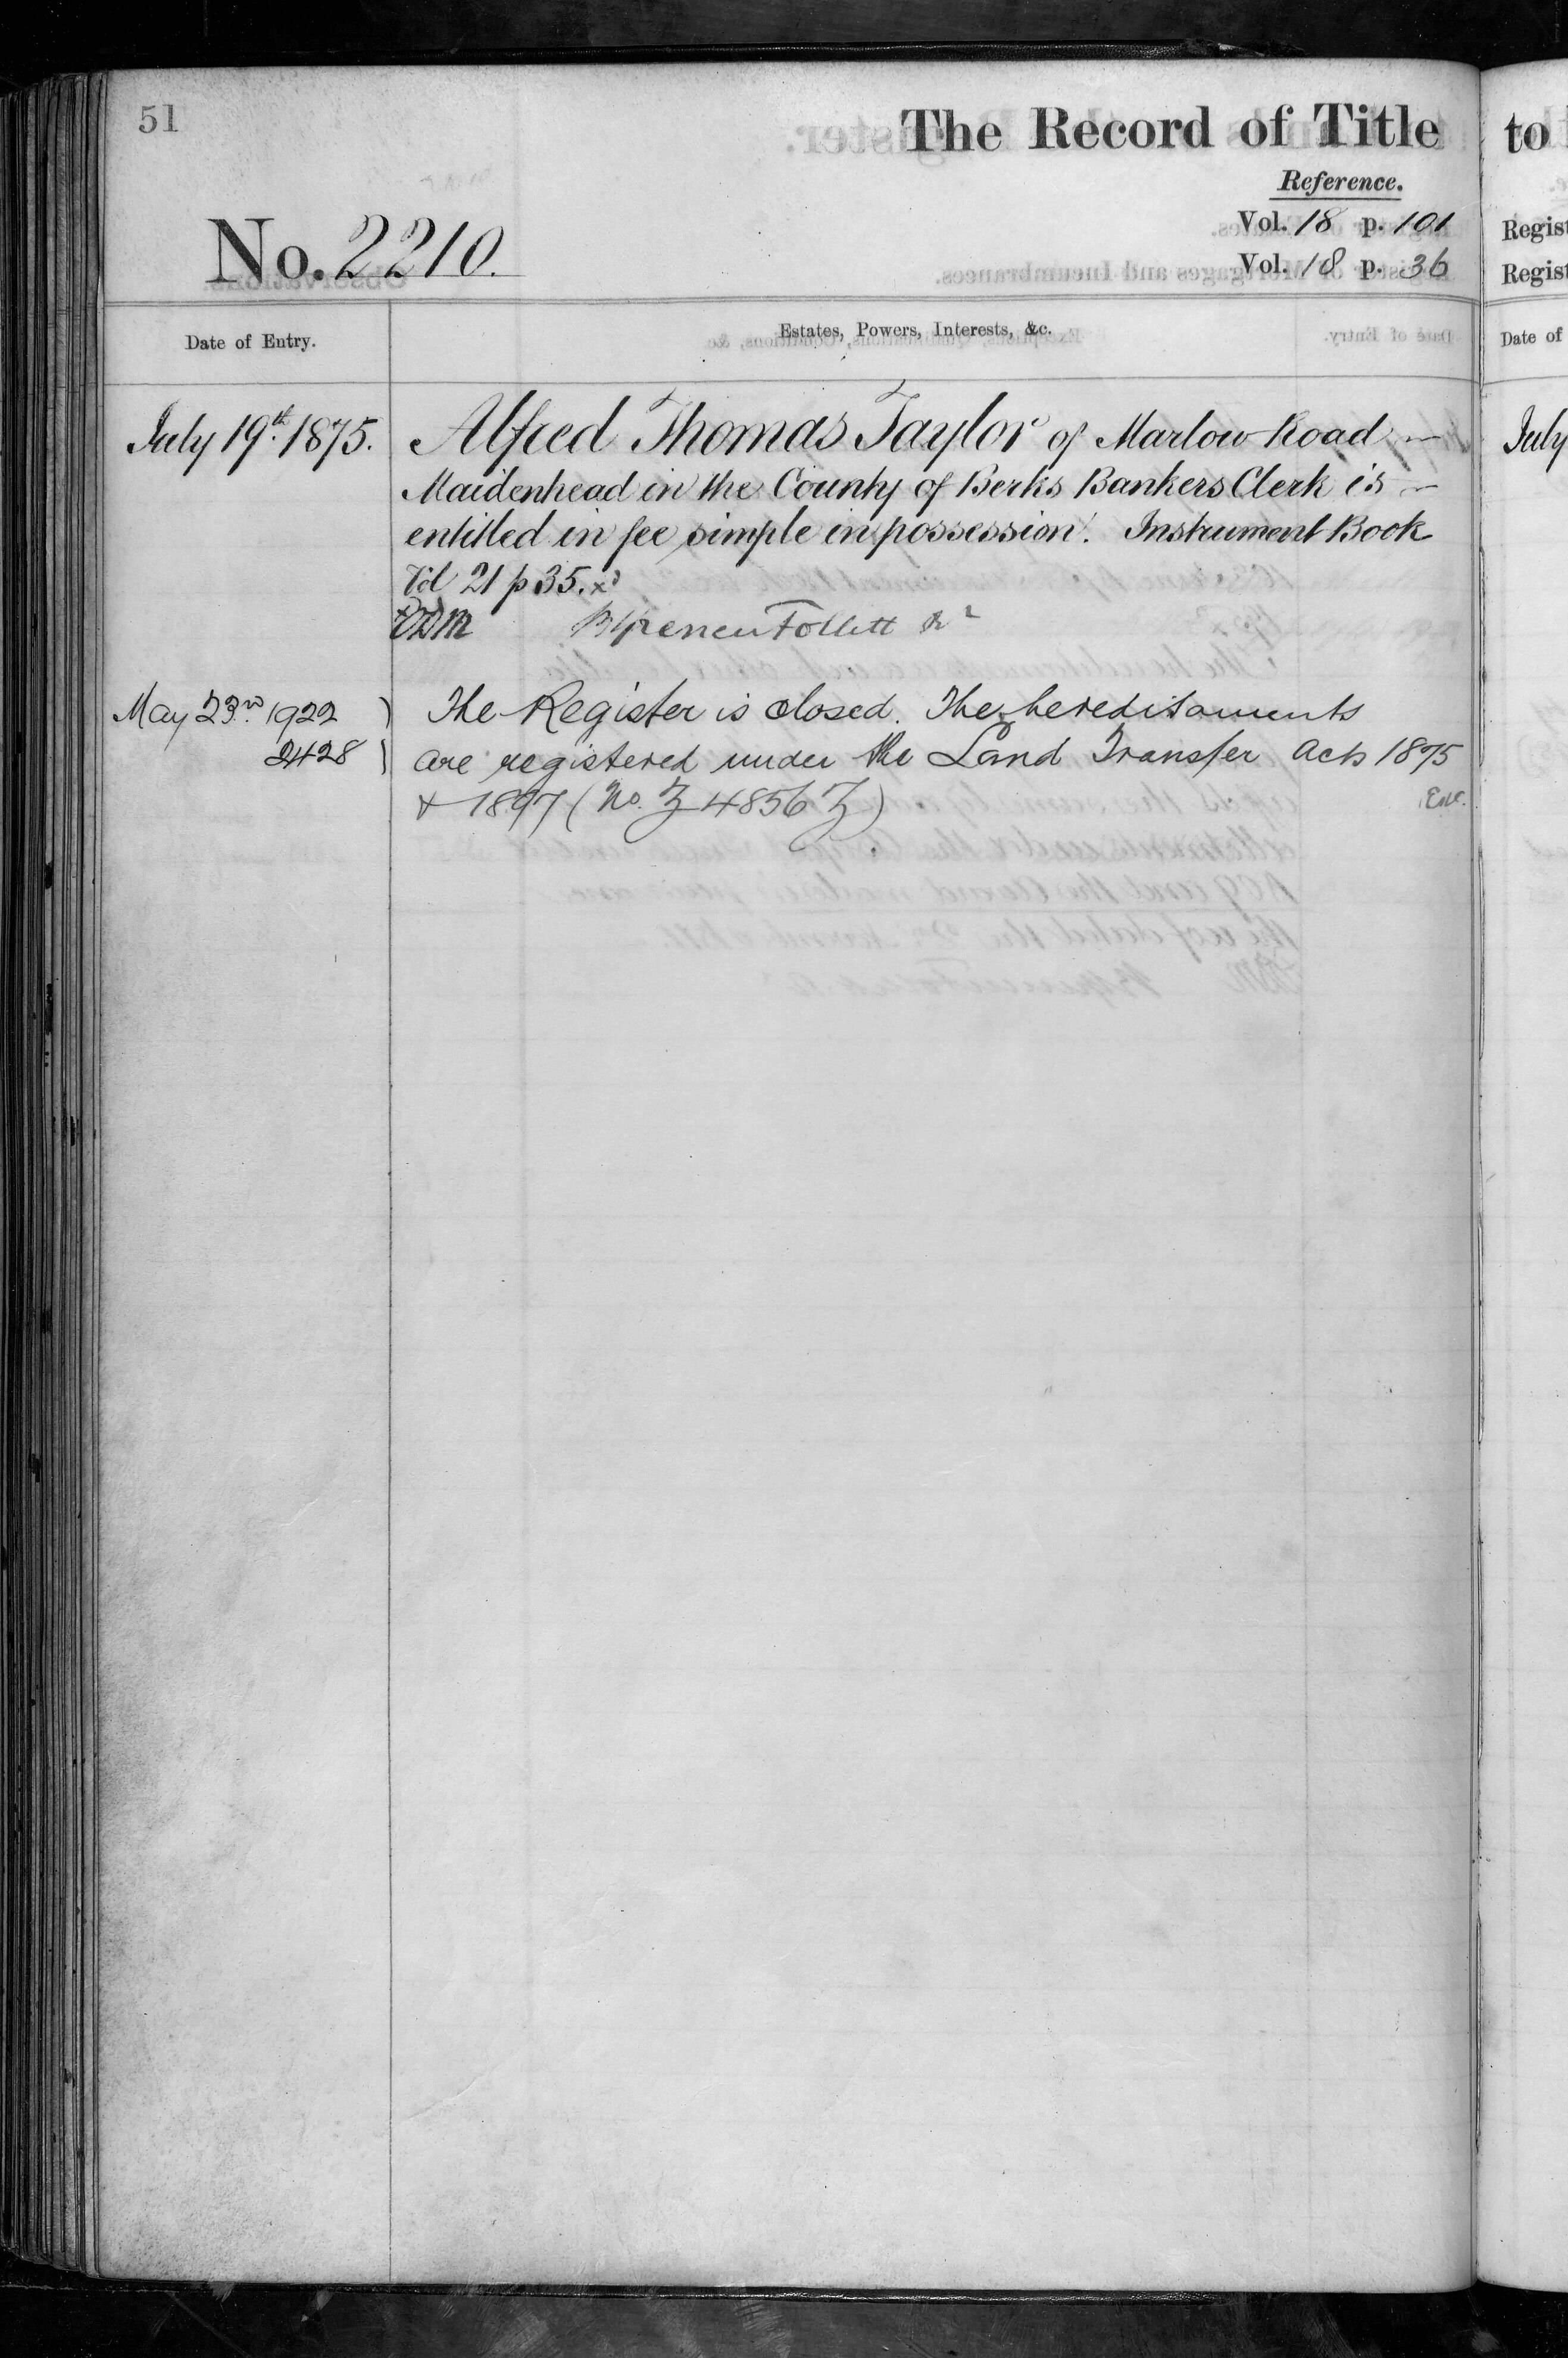 51
The Record of Title
to
Reference.
No. 2210.
Vol. 18 p. 101
Regist
Vol. 18 p. 36
Regist
Date of Entry.
Estates, Powers, Interests, &c.
Date of
July 19th. 1875.
Alfred Thomas Taylor of Marlow Road
July
Maidenhead in the County of Berks Bankers Clerk is
entitled in fee simple in possession. Instrument Book
Vol 21 p 35.
Follett
May 23rd 1922
The Register is closed. The hereditaments
2428
are registered under the Land Transfer Acts 1875
& 1897 (No. Z 4856 Z)